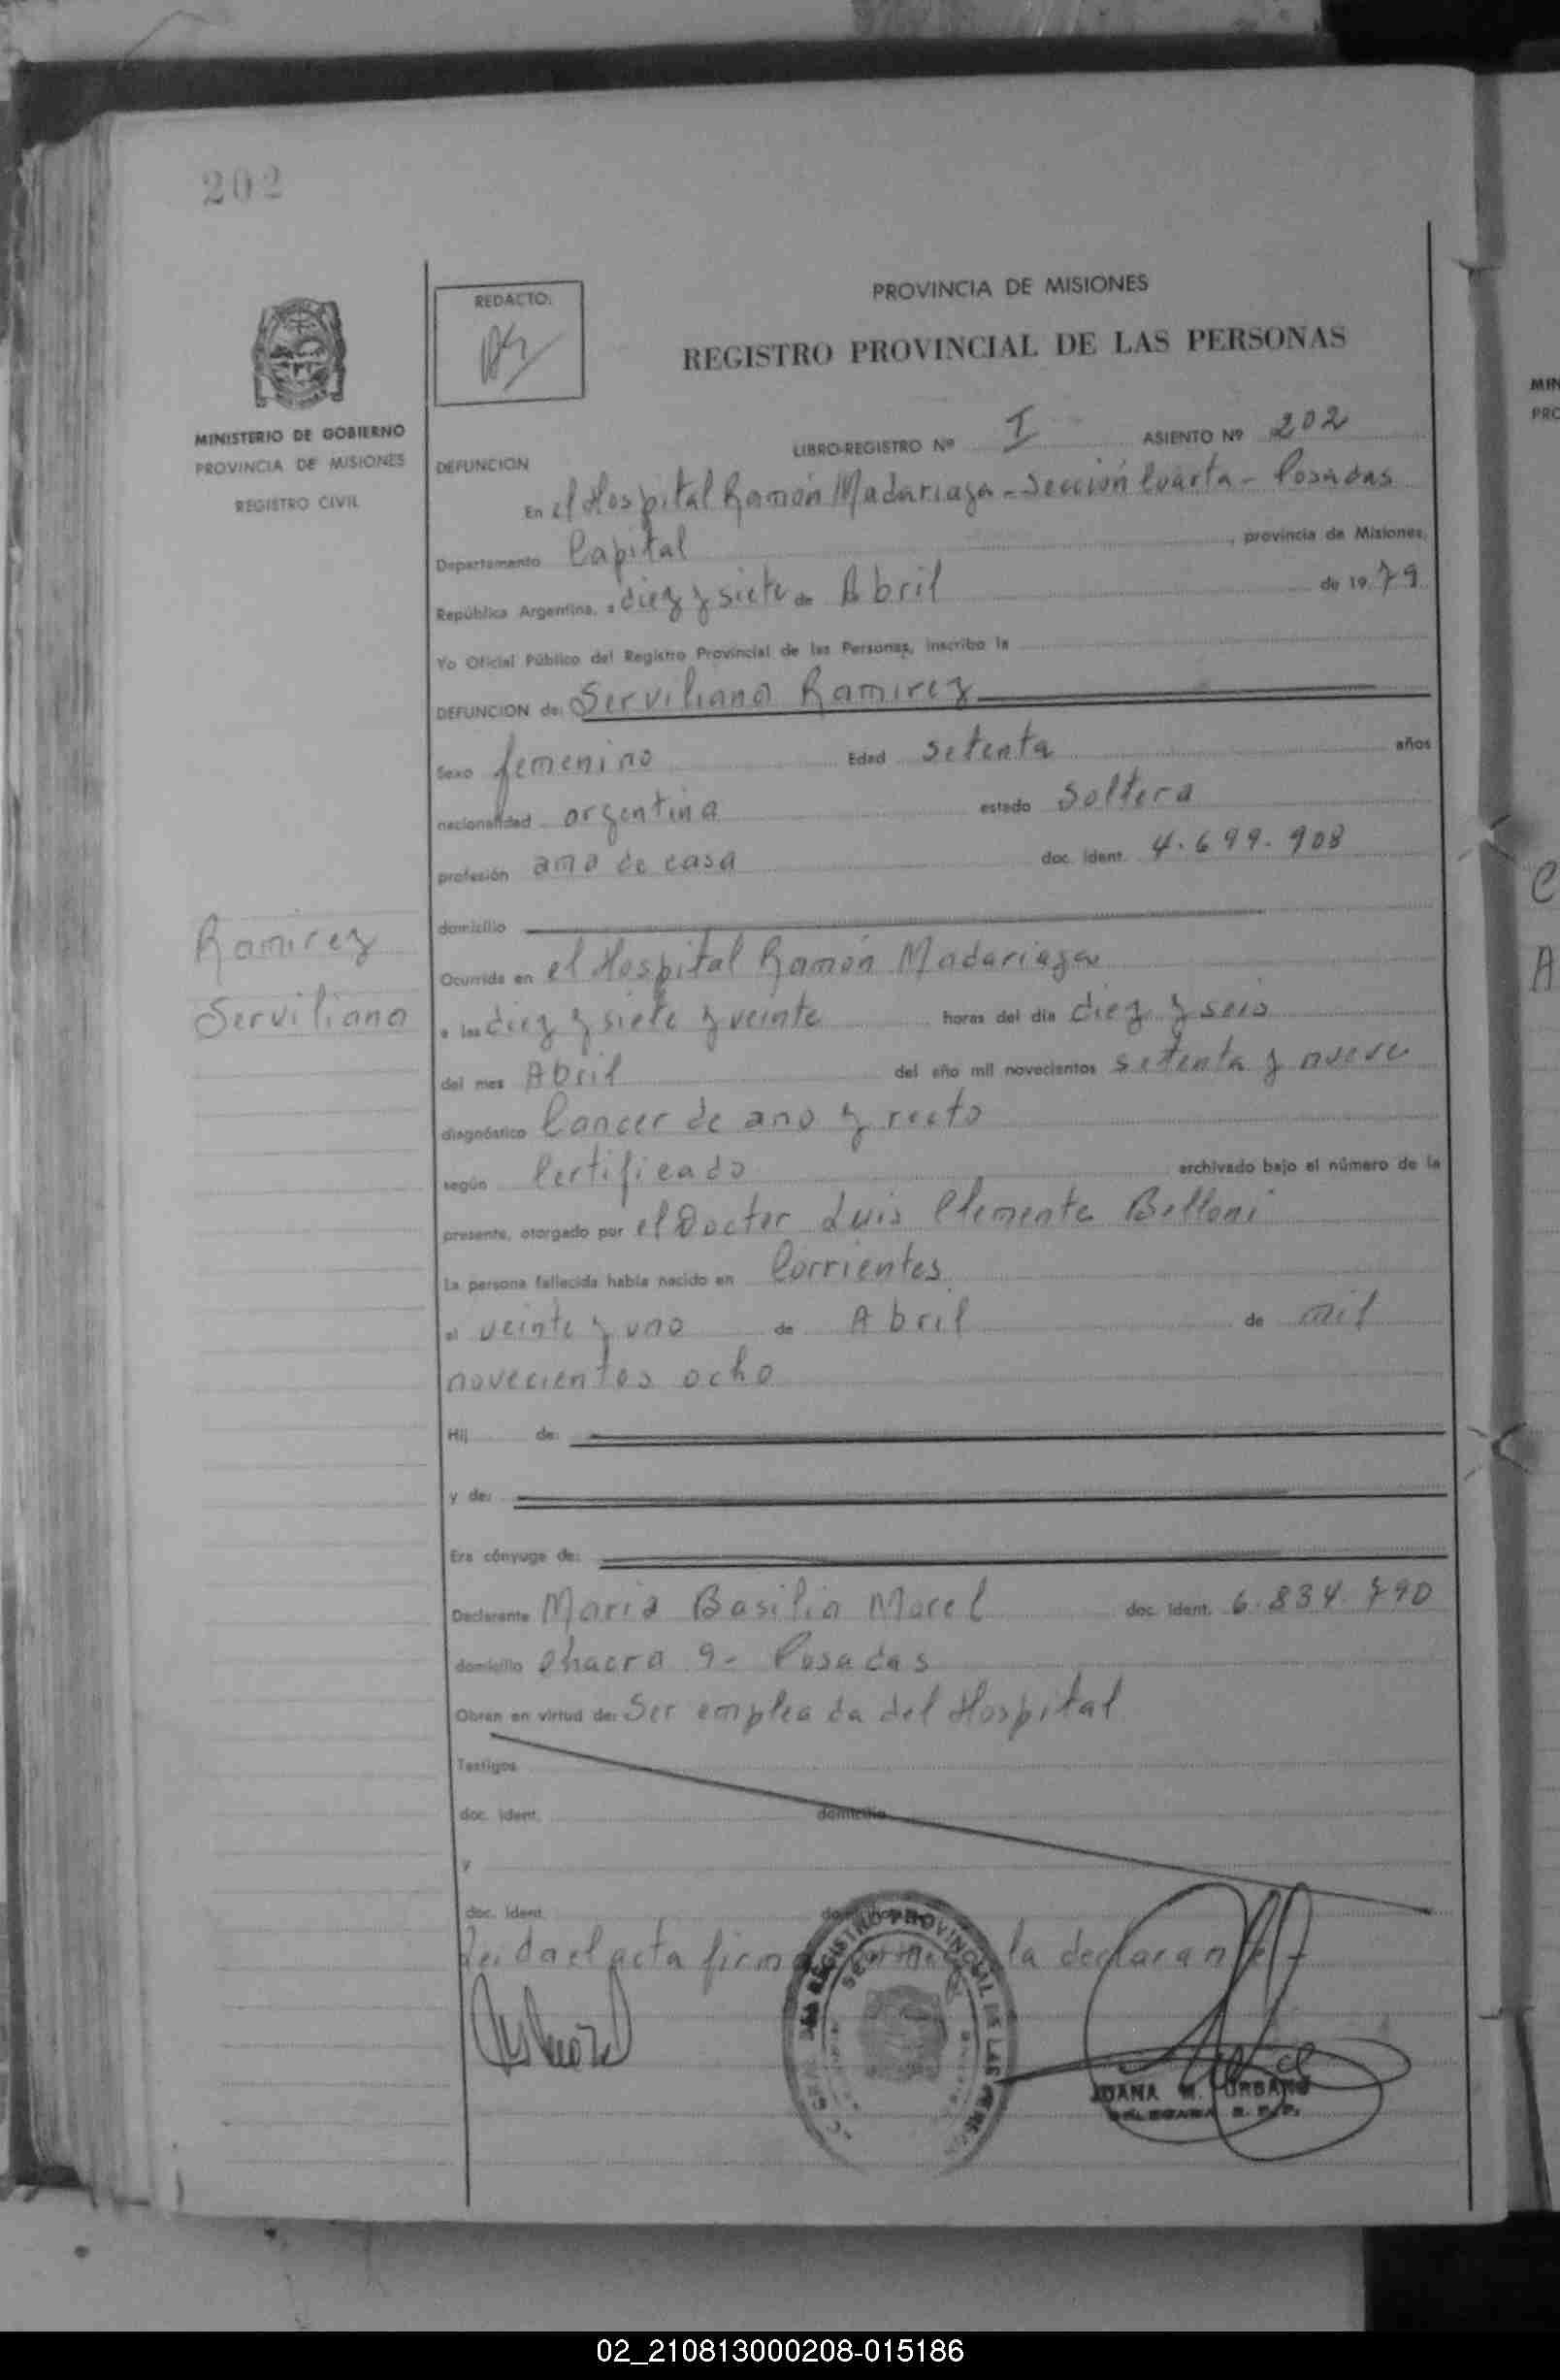 202
PROVINCIA DE MISIONES
REGISTRO PROVINCIAL DE LAS PERSONAS
REDACTO:
MINISTERIO DE GOBIERNO
PROVINCIA DE MISIONES
REGISTRO CIVIL
LIBRO-REGISTRO Nº I ASIENTO Nº 202
DEFUNCION
En el Hospital Ramón Madariaga - Sección Cuarta - Posadas
Departamento Capital, provincia de Misiones,
República Argentina, a diez y siete de Abril de 19 79
Yo Oficial Público del Registro Provincial de las Personas, inscribo la
DEFUNCION de: Serviliana Ramirez
Sexo femenino Edad setenta años
nacionalidad argentina estado Soltera
profesión ama de casa doc. ident. 4.699.908
domicilio
Ramirez
Serviliana
Ocurrida en el Hospital Ramón Madariaga
a las diez y siete y veinte horas del día diez y seis
del mes Abril del año mil novecientos setenta y nueve
diagnóstico Cancer de ano y recto
según Certificado archivado bajo el número de la
presente, otorgado por el Doctor Luis Clemente Belloni
La persona fallecida había nacido en Corrientes
el veinte y uno de Abril de mil
novecientos ocho
Hij de:
y de:
Era cónyuge de:
Declarante Maria Basilia Morel doc. ident. 6.834.790
domicilio Chacra 9 - Posadas
Obran en virtud de: Ser empleada del Hospital
Testigos
doc. ident. domicilio
y
doc. ident.
Leida el acta firma la declarante -
REGISTRO PROVINCIAL DE LAS
URBANO
02_210813000208-015186